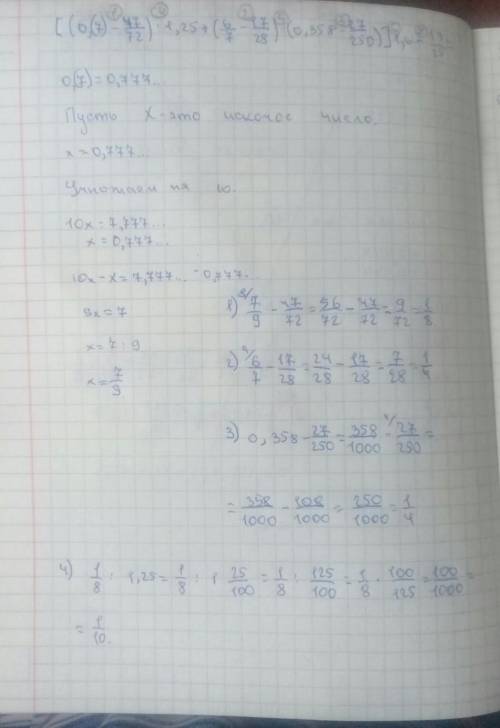 [(0,(7) - 47/72) : 1,25 + (6/7 - 17/28) : (0,358 - 27/250)]
0,(7) = 0,777...
Пусть X-это искомое число.
x = 0,777...
Умножаем на 10.
10x = 7,777...
x = 0,777...
10x - x = 7,777... - 0,777...
9x = 7
x = 7 : 9
x = 7/9
1) 8/ 7/9 - 47/72 = 56/72 - 47/72 = 9/72 = 1/8
2) 4/ 6/7 - 17/28 = 24/28 - 17/28 = 7/28 = 1/4
3) 0,358 - 27/250 = 358/1000 - 4/ 27/250 =
= 358/1000 - 108/1000 = 250/1000 = 1/4
4) 1/8 : 1,25 = 1/8 : 1 25/100 = 1/8 : 125/100 = 1/8 · 100/125 = 100/1000 =
= 1/10.